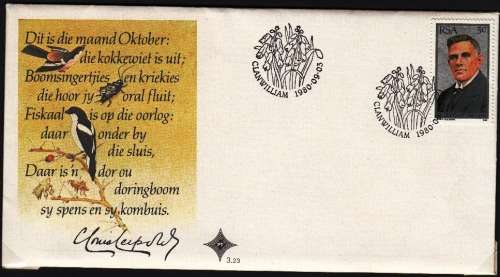 Dit is die maand Oktober:
die kokkewiet is uit;
Boomsingertjies en kriekies
die hoor jy oral fluit;
Fiskaal is op die oorlog:
daar onder by
die sluis,
Daar is 'n dor ou
doringboom
sy spens en sy kombuis.
3.23
CLANWILLIAM 1980-09-03
CLANWILLIAM 1980
RSA 5c